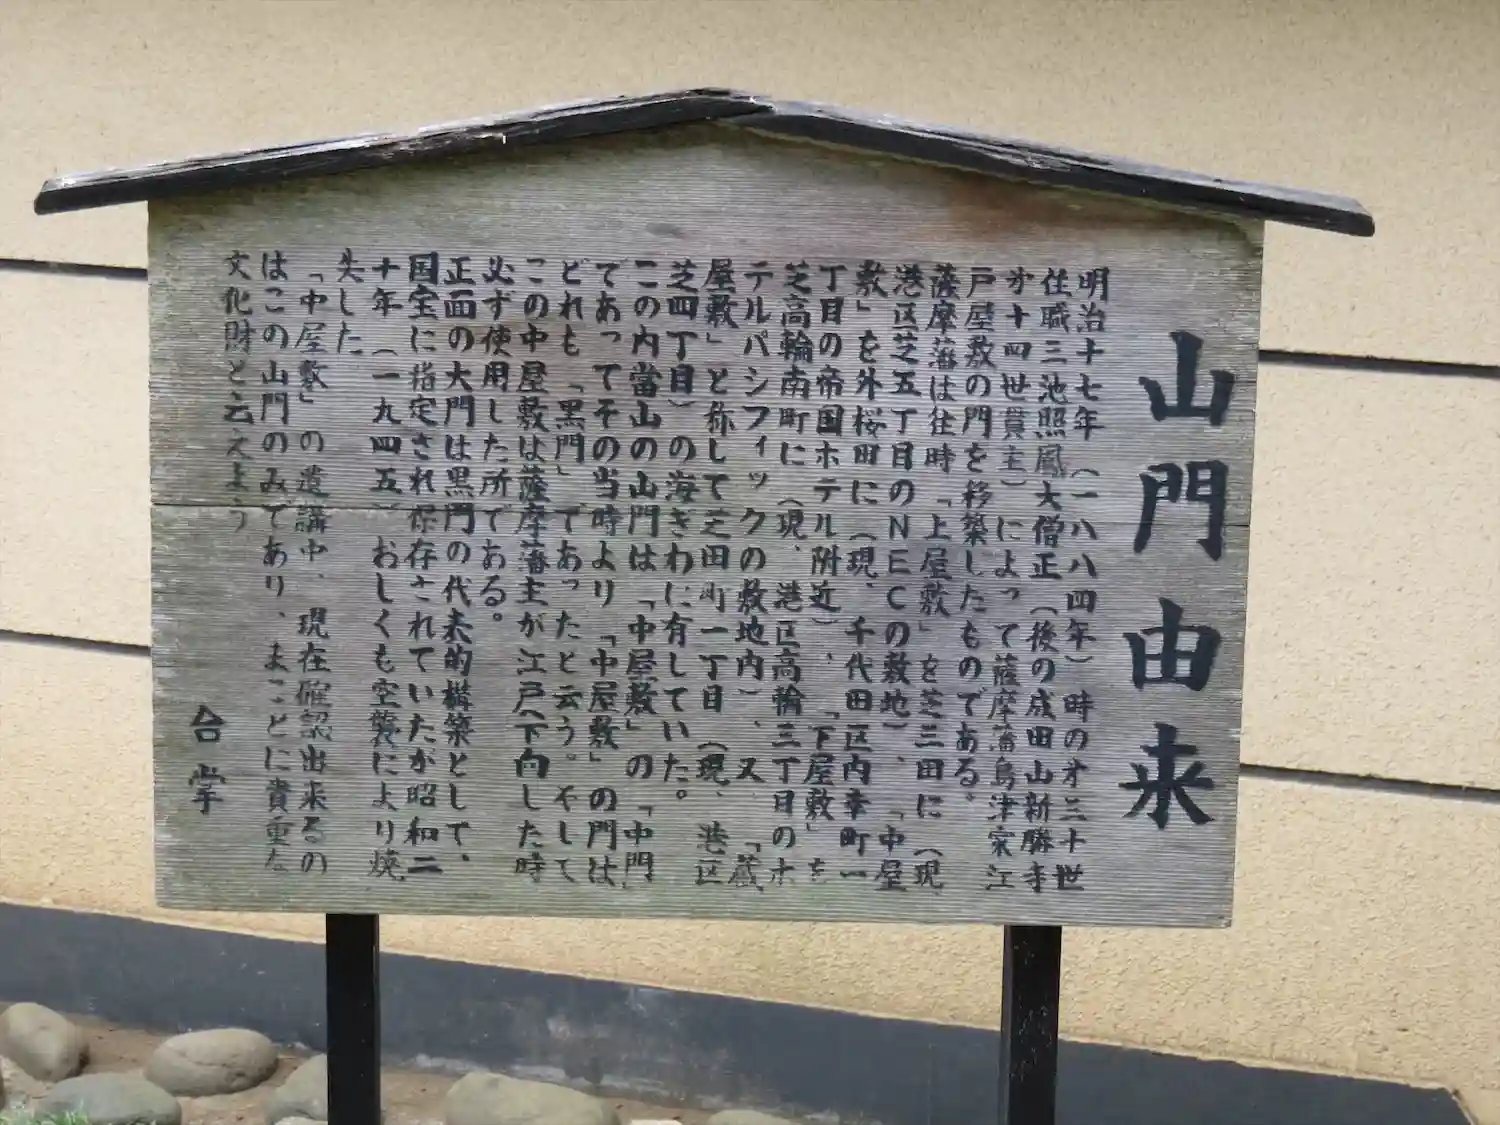 山門由来
明治十七年（一八八四年）時の才三十世
住職三池照鳳大僧正（後の成田山新勝寺
才十四世貫主）によって薩摩藩島津家江
戸屋敷の門を移築したものである。
薩摩藩は往時「上屋敷」を芝三田に（現
港区芝五丁目のＮＥＣの敷地）、「中屋
敷」を外桜田に（現、千代田区内幸町一
丁目の帝国ホテル附近）、「下屋敷」を
芝高輪南町に（現、港区高輪三丁目のホ
テルパシフィックの敷地内）、又「蔵
屋敷」と称して芝田町一丁目（現、港区
芝四丁目）の海ぎわに有していた。
この内當山の山門は「中屋敷」の「中門
であってその当時より「中屋敷」の門は
どれも「黒門」であったと云う。そして
この中屋敷は薩摩藩主が江戸へ下向した時
必ず使用した所である。
正面の大門は黒門の代表的構築として、
国宝に指定され保存されていたが昭和二
十年（一九四五）おしくも空襲により焼
失した
「中屋敷」の遺講中、現在確認出来るの
はこの山門のみであり、まことに貴重な
文化財と云えよう
合掌